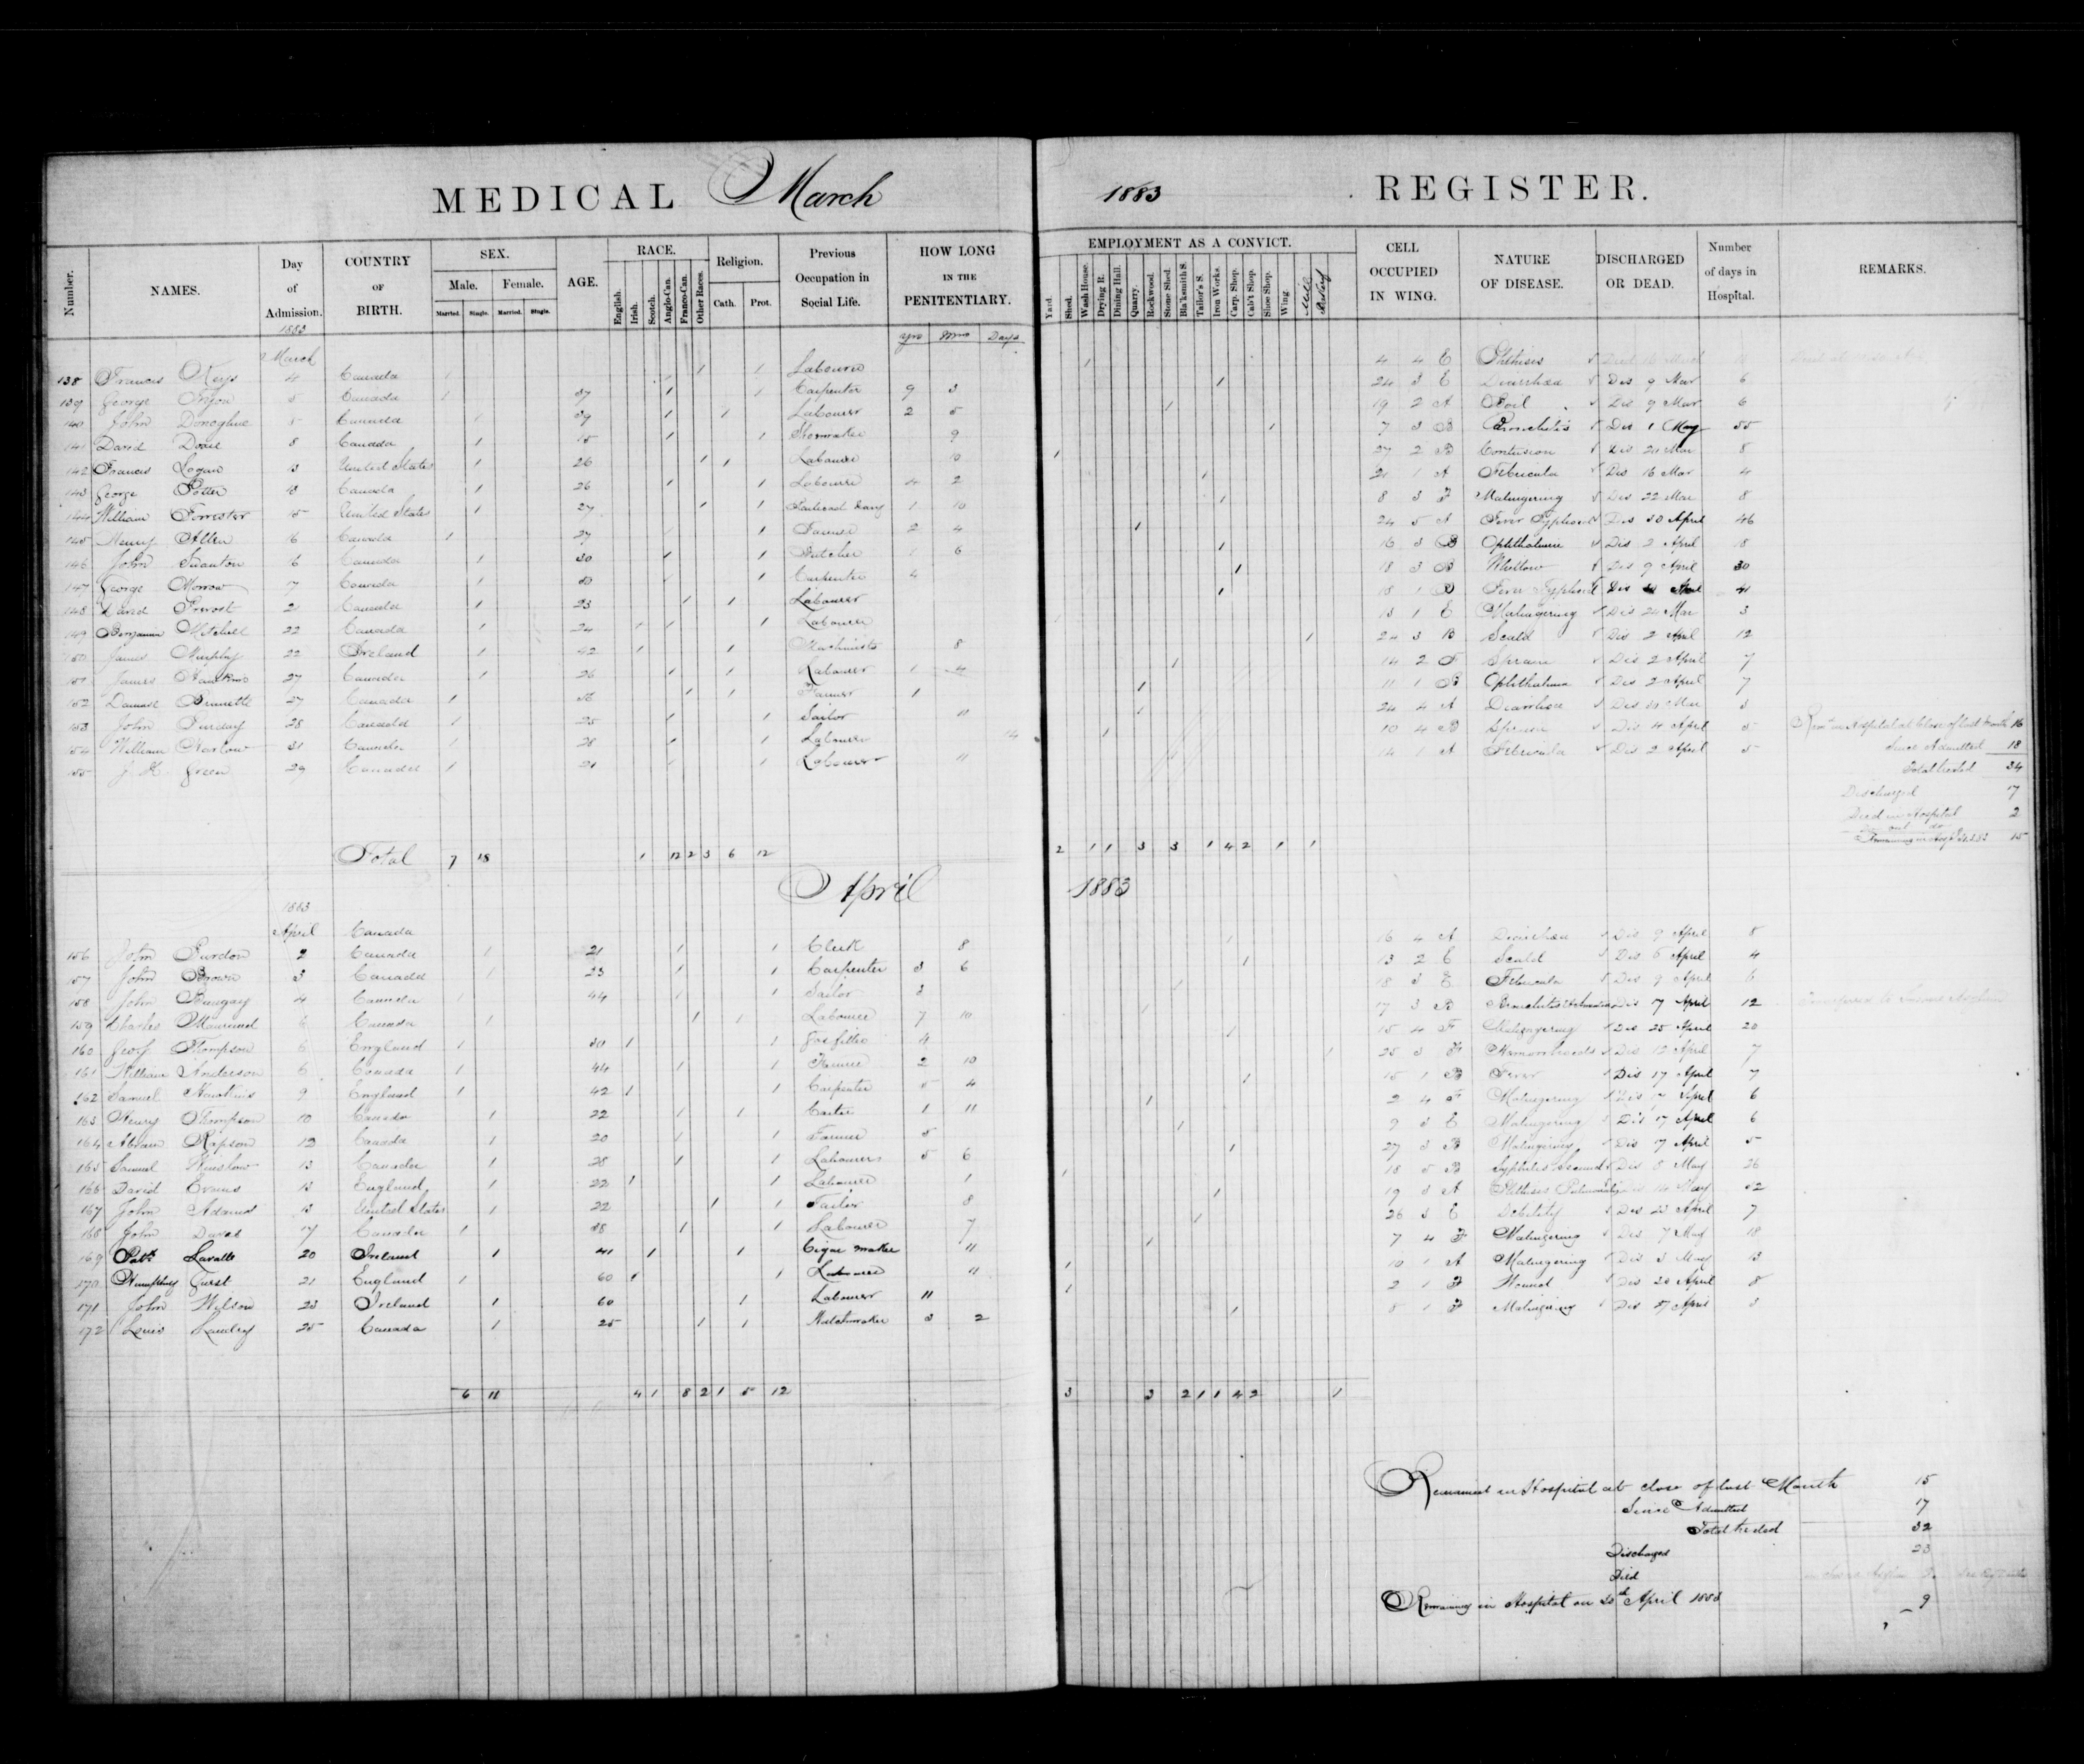 MEDICAL March 1883 REGISTER.
Number. NAMES. Day of Admission. COUNTRY OF BIRTH. SEX. Male. Female. Married. Single. Married. Single. AGE. RACE. English. Irish. Scotch. Anglo-Can. Franco-Can. Other Races. Religion. Cath. Prot. Previous Occupation in Social Life. HOW LONG IN THE PENITENTIARY. yrs Mos Days EMPLOYMENT AS A CONVICT. Yard. Shed. Wash House. Drying R. Dining Hall. Quarry. Rockwood. Stone Shed. Bla'ksmith S. Tailor's S. Iron Works. Carp. Shop. Cab't Shop. Shoe Shop. Wing. Mill CELL OCCUPIED IN WING. NATURE OF DISEASE. DISCHARGED OR DEAD. Number of days in Hospital. REMARKS.
1883
March
138 Francis Keys 4 Canada Labourer 4 4 E Phthisis
139 George 5 Canada 37 Carpenter 9 3 24 3 E Diarrhœa Dis 9 Mar 6
140 John Donoghue 5 Canada 39 Labourer 2 5 19 2 A Boil Dis 9 Mar 6
141 David 8 Canada 15 Shoemaker 9 7 3 B Bronchitis Dis 1 May 55
142 Francis Logan 13 United States 26 Labourer 10 27 2 B Contusion Dis 21 Mar 8
143 George Potter 13 Canada 26 Labourer 4 2 21 1 A Febricula Dis 16 Mar 4
144 William Forrester 15 United States 27 1 10 8 3 F Malingering Dis 22 Mar 8
145 Henry Allen 16 Canada 27 Farmer 2 4 24 5 A Fever Typhoid Dis 30 April 46
146 John Swanton 16 Canada 30 Butcher 1 6 16 3 B Ophthalmia Dis 2 April 18
147 George Morrow 17 Canada 30 Carpenter 4 18 3 B Whitlow Dis 9 April 30
148 David Prevost 21 Canada 23 Labourer 18 1 B Fever Typhoid Dis 41
149 Benjamin Mitchell 22 Canada 24 Labourer 13 1 E Malingering Dis 24 Mar 3
150 James Murphy 22 Ireland 42 Machinist 8 24 3 B Scald Dis 2 April 12
151 James Hawkins 27 Canada 26 Labourer 1 4 14 2 F Sprain Dis 2 April 7
152 Damase Brunette 27 Canada 56 Farmer 1 11 1 B Ophthalmia Dis 2 April 7
153 John 28 Canada 25 Sailor 11 24 4 A Diarrhœa Dis 30 Mar 3
154 William Harlow 31 Canada 28 Labourer 14 10 4 B Sprain Dis 4 April 5 Remd in Hospital at Close of last Month 16
155 J H Green 29 Canada 21 Labourer 11 14 1 A Febricula Dis 2 April 5 Since Admitted 18
Total treated 34
Discharged 17
Died in Hospital 2
Remaining 15
Total 7 18 1 12 2 3 6 12 2 1 1 3 3 1 4 2 1 1
April 1883
1883
April Canada
156 John Purdon 2 Canada 21 Clerk 8 16 4 A Diarrhœa Dis 9 April 8
157 John Brown 3 Canada 33 Carpenter 3 6 13 2 E Scald Dis 6 April 4
158 John Bungay 4 Canada 44 Sailor 3 18 3 E Febricula Dis 9 April 6
159 Charles 6 Canada Labourer 7 10 17 3 B Dis 17 April 12
160 Geof Thompson 6 England 30 Gasfitter 4 15 4 F Malingering Dis 25 April 20
161 William Anderson 6 Canada 44 Farmer 2 10 25 3 F Hæmorrhoids Dis 12 April 7
162 Samuel Hawkins 9 England 42 Carpenter 5 4 15 1 B Fever Dis 17 April 7
163 Henry Thompson 10 Canada 22 Carter 1 11 2 4 F Malingering Dis 17 April 6
164 Abram Rapson 12 Canada 20 Farmer 5 9 3 E Malingering Dis 17 April 6
165 Samuel Winslow 13 Canada 28 Labourer 5 6 27 3 B Malingering Dis 17 April 5
166 David Evans 13 England 22 Labourer 1 18 5 B Syphilis Second Dis 8 May 26
167 John Adams 13 United States 22 Tailor 8 19 3 A Phthisis Pulmonalis Dis 14 May 32
168 John Davis 17 Canada 38 Labourer 7 26 3 E Debility Dis 23 April 7
169 Patk Lavalle 20 Ireland 41 Cigar maker 11 7 4 F Malingering Dis 7 May 18
170 Humphrey Gurst 21 England 60 Labourer 11 10 1 A Malingering Dis 3 May 13
171 John Wilson 23 Ireland 60 Labourer 11 2 1 F Wound Dis 30 April 8
172 Louis Landry 25 Canada 25 Watchmaker 3 2 8 1 F Malingering Dis 27 April 3
6 11 4 1 8 2 1 5 12 3 3 2 1 1 4 2 1
Remained in Hospital at close of last Month 15
Since Admitted 17
Total treated 32
Discharged 23
Died
Remaining in Hospital on 30th April 1883 9